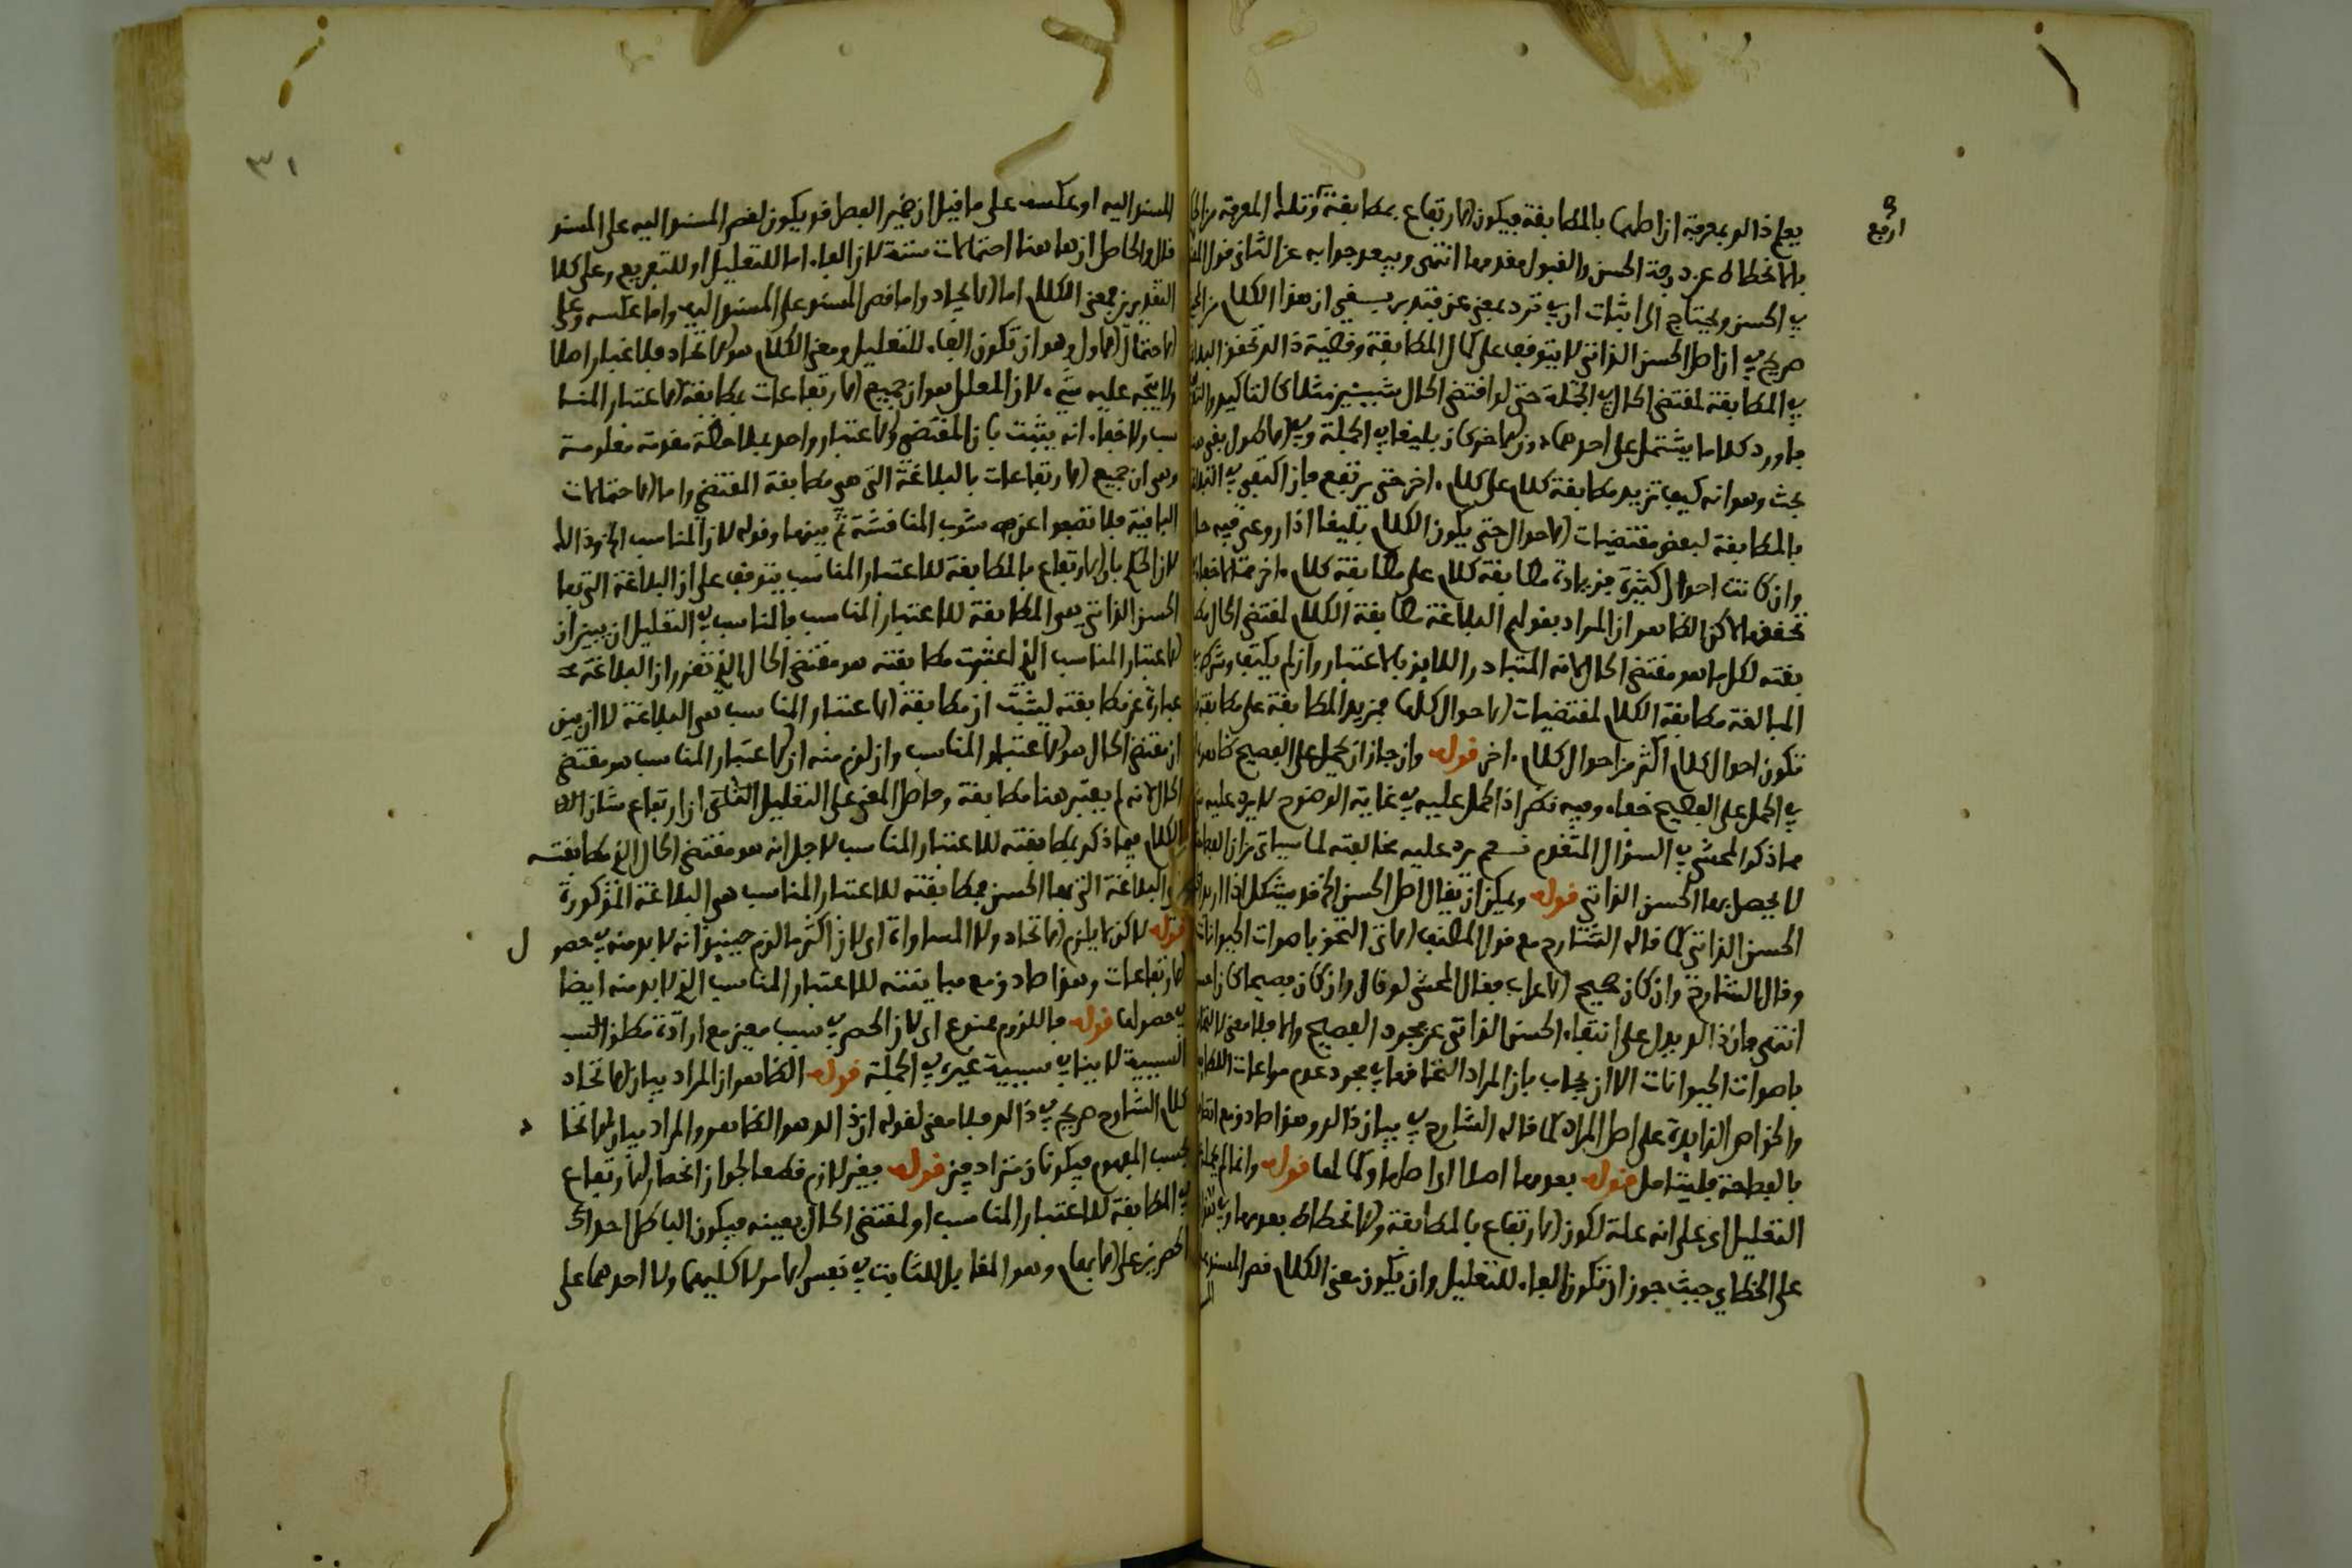 يعلم ذالك بمعرفة ان اصلها بالمطابقة فيكون الارتفاع بمطابقة وتلك المعرفة من
ارفع
بالانحطاط عن درجة الحسن والقبول بعدمها انتهى ويبعد جوابه عن الثاني قول
في الحسن ويحتاج الى اثبات ان في ترد بمعنى عن فتدبر بقي ان هذا الكلام
صريح في ان اصل الحسن الذاتي لا يتوقف على كمال المطابقة وقضية ذالك تحقق
في المطابقة لمقتضى الحال في الجملة حتى لو اقتضى الحال شيئين مثلا كالتاكيد
فاورد كلاما يشتمل على احدهما دون الاخر كان بليغا في الجملة وفي الاطول بقي هنا
بحث وهو انه كيف تزيد مطابقة كلام على كلام ءاخر حتى يرتفع فان اكتفي في
بالمطابقة لبعض مقتضيات الاحوال حتى يكون الكلام بليغا اذا روعي فيه
وان كانت احوال كثيرة فزيادة مطابقة كلام على مطابقة كلام ءاخر مما لا خفاء
تحققها لاكن الظاهر ان المراد بقولهم البلاغة مطابقة الكلام لمقتضى الحال
بقته لكل ما هو مقتضى الحال لانه المتبادر اللايق بالاعتبار وان لم يكتف
المبالغة مطابقة الكلام لمقتضيات الاحوال كلها فمزيد المطابقة على مطابقة
تكون احوال كلام اكثر من احوال كلام ءاخر قوله وان جاز ان يحمل على الفصيح
في الحمل على الفصيح خفاء وفيه نظر اذ الحمل عليه في غاية الوضوح لا يرد عليه
مما ذكر المحشي في السؤال المتقدم نعم يرد عليه مخالفته لما سياتي من ان
لا يحصل بها الحسن الذاتي قوله ويمكن ان يقال اصل الحسن الخ قد يشكل اذا اريد
الحسن الذاتي كما قاله الشارح مع قول المصنف الاتي التحق باصوات الحيوانات
وقال الشارح وان كان صحيح الاعراب فقال المحشي لو قال وان كان فصيحا كان
انتهى فان ذالك يدل على انتفاء الحسن الذاتي عن مجرد الفصيح والا فلا معنى
باصوات الحيوانات الا ان يجاب بان المراد التحاقها في مجرد عدم مراعات
والخواص الزايدة على اصل المراد كما قاله الشارح في بيان ذالك وهو صادق مع
بالفصاحة فليتامل قوله بعدمها اصلا اي اصلها وكمالها قوله وانما لم
التعليل اي على انه علة لكون الارتفاع بالمطابقة والانحطاط بعدمها
على الخطاي حيث جوز ان تكون الفاء للتعليل وان يكون معنى الكلام قصر المسند
٣١
المسند اليه او عكسه على ما قيل ان ضمير الفصل قد يكون لقصر المسند اليه على المسند
قال والحاصل ان هاهنا احتمالات ستة لان الفاء اما للتعليل او للتفريع وعلى كلا
التقديرين فمعنى الكلام اما الاتحاد واما قصر المسند على المسند اليه واما عكسه وعلى
الاحتمال الاول وهو ان تكون الفاء للتعليل ومعنى الكلام هو الاتحاد فلا غبار اصلا
ولا يتجه عليه شيء لان المعلل هو ان جميع الارتفاعات بمطابقة الاعتبار المنا
سب ولا خفاء انه يثبت بان المقتضى والاعتبار واحد بملاحظة مقدمة معلومة
وهي ان جميع الارتفاعات بالبلاغة التي هي مطابقة المقتضى واما الاحتمالات
الباقية فلا تصفوا عن شوب المناقشة ثم بينها وقوله لان المناسب الخ وذالك
لان الحكم بان الارتفاع بالمطابقة للاعتبار المناسب يتوقف على ان البلاغة التي بها
الحسن الذاتي هي المطابقة للاعتبار المناسب فالمناسب في التعليل ان يبين ان
الاعتبار المناسب الذي اعتبرت مطابقته هو مقتضى الحال الذي تقرر ان البلاغة
عبارة عن مطابقته ليثبت ان مطابقة الاعتبار المناسب هي البلاغة لا ان يبين
ان مقتضى الحال هو الاعتبار المناسب وان لزم منه ان الاعتبار المناسب هو مقتضى
الحال لانه لم يعتبر هنا مطابقة وحاصل المعنى على التعليل الثاني ان ارتفاع شان
الكلام فيما ذكر بمطابقته للاعتبار المناسب لاجل انه هو مقتضى الحال الذي مطابقته
والبلاغة التي بها الحسن فمطابقته للاعتبار المناسب هي البلاغة المذكورة
قوله لاكن لا يلزم الاتحاد ولا المساواة اي لان اكثر ما لزم حينيذ انه لا بد منه في حصول
الارتفاعات وهو صادق مع مباينته للاعتبار المناسب الذي لا بد منه ايضا
في حصولها قوله فاللزوم ممنوع اي لان الحصر في سبب معين مع ارادة مطلق السبب
السببية لا ينافي سببية غيره في الجملة قوله الظاهر ان المراد بيان الاتحاد
كلام الشارح صريح في ذالك فلا معنى لقوله ان ذالك هو الظاهر والمراد بيان الاتحاد
بحسب المفهوم فيكونان مترادفين قوله فغير لازم قطعا لجواز انحصار الارتفاع
في المطابقة للاعتبار المناسب او لمقتضى الحال بعينه فيكون الباطل احدى
الحصرين على الابهام وهو المقابل للثابت في نفس الامر لا كليهما ولا احدهما على